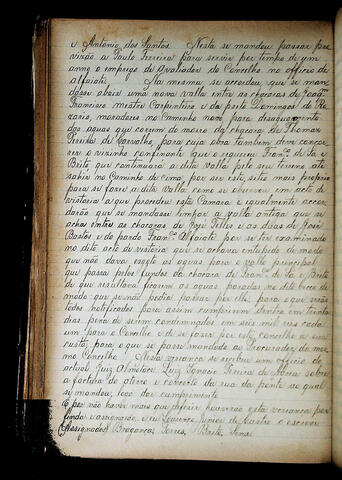 e Antonio dos Santos. Nesta se mandou passar pro
visão a Paulo Ferreira para servir por tempo de um
anno o emprego de Avaliador do Concelho no officio de
Alfaiate. Na mesma se accordou que se man
dasse abrir uma nova valla entre as chacaras de Joaqm
Francisco mestre Carpinteiro e da preta Domingas do Ro
zario, moradores no Caminho novo para desaguamento
das aguas que correm do morro da chacara de Thomaz
Pereira de Carvalho, para cuja obra tambem deve concor
rer o visinho confinante que o requereu Franco de Sá e
Brito, que continuará a dita valla pelo seu terreno até
sahir no Caminho de cima, por ser este, sitio mais proprio
para se fazer a dita valla como se observou em acto de
vistoria a que procedeu esta Camara e igualmente accor
darão que se mandasse limpar a valla antiga que se
acha entre as chacaras de José Telles e as duas de José
Bastos e do pardo Franco Alfaiate por se ter examinado
no dito acto de vistoria que se achava entupida de modo
que não dava exgoto as aguas para a valla principal
que passa pelos fundos da chacara de Franco de Sá e Brito
de que resultava ficarem as aguas paradas no dito beco de
modo que não podia passar por elle, para o que serão
todos notificados para assim cumprirem dentro em trinta
dias pena de serem condemnados em seis mil reis cada
um para o Concelho e de se fazer por este concelho a sua
custa, para o que se passe mandado ao Procurador do mes
mo Concelho. Nesta vereança se recebeu um officio do
actual Juiz Almotacé Luiz Ignacio Pereira de Abreu sobre
a factura do aterro e concerto da rua da ponte ao qual
se mandou logo dar cumprimento
E por não haver mais que deferir houverão esta vereança por
finda e assignarão. e eu Lourenço Junior de Castro o escrevi
(Assignados) Bragança, Torres, Brito, Lima